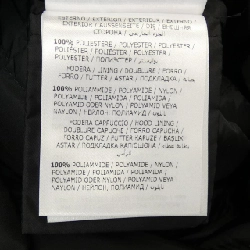 ESTERNO / EXTERIOR / EXTERIEUR / EXTERNO
EXTERIEUR / AUSSENSEITE / DIŞ /
СТОРОНА /
100% POLIESTERE / POLYESTER / POLYESTER /
POLIÉSTER / POLIESTER / POLYESTER /
POLYESTER / ПОЛИЭСТЕР /
FODERA / LINING / DOUBLURE / FORRO
FORRO / FUTTER / ASTAR / ПОДКЛАДКА /
100% POLIAMMIDE / POLYAMIDE / NYLON /
POLYAMIDE / POLIAMIDA / POLIAMIDA /
POLYAMID ODER NYLON / POLYAMID VEYA
NAYLON / НЕЙЛОН / ПОЛИАМИД /
FODERA CAPPUCCIO / HOOD LINING /
DOUBLURE CAPUCHE / FORRO CAPUCHA /
FORRO CAPUZ / FUTTER KAPUZE / BASLIK
ASTARI / ПОДКЛАДКА КАПЮШОНА /
100% POLIAMMIDE / POLYAMIDE / NYLON /
POLYAMIDE / POLIAMIDA / POLIAMIDA /
POLYAMID ODER NYLON / POLYAMID VEYA
NAYLON / НЕЙЛОН / ПОЛИАМИД /